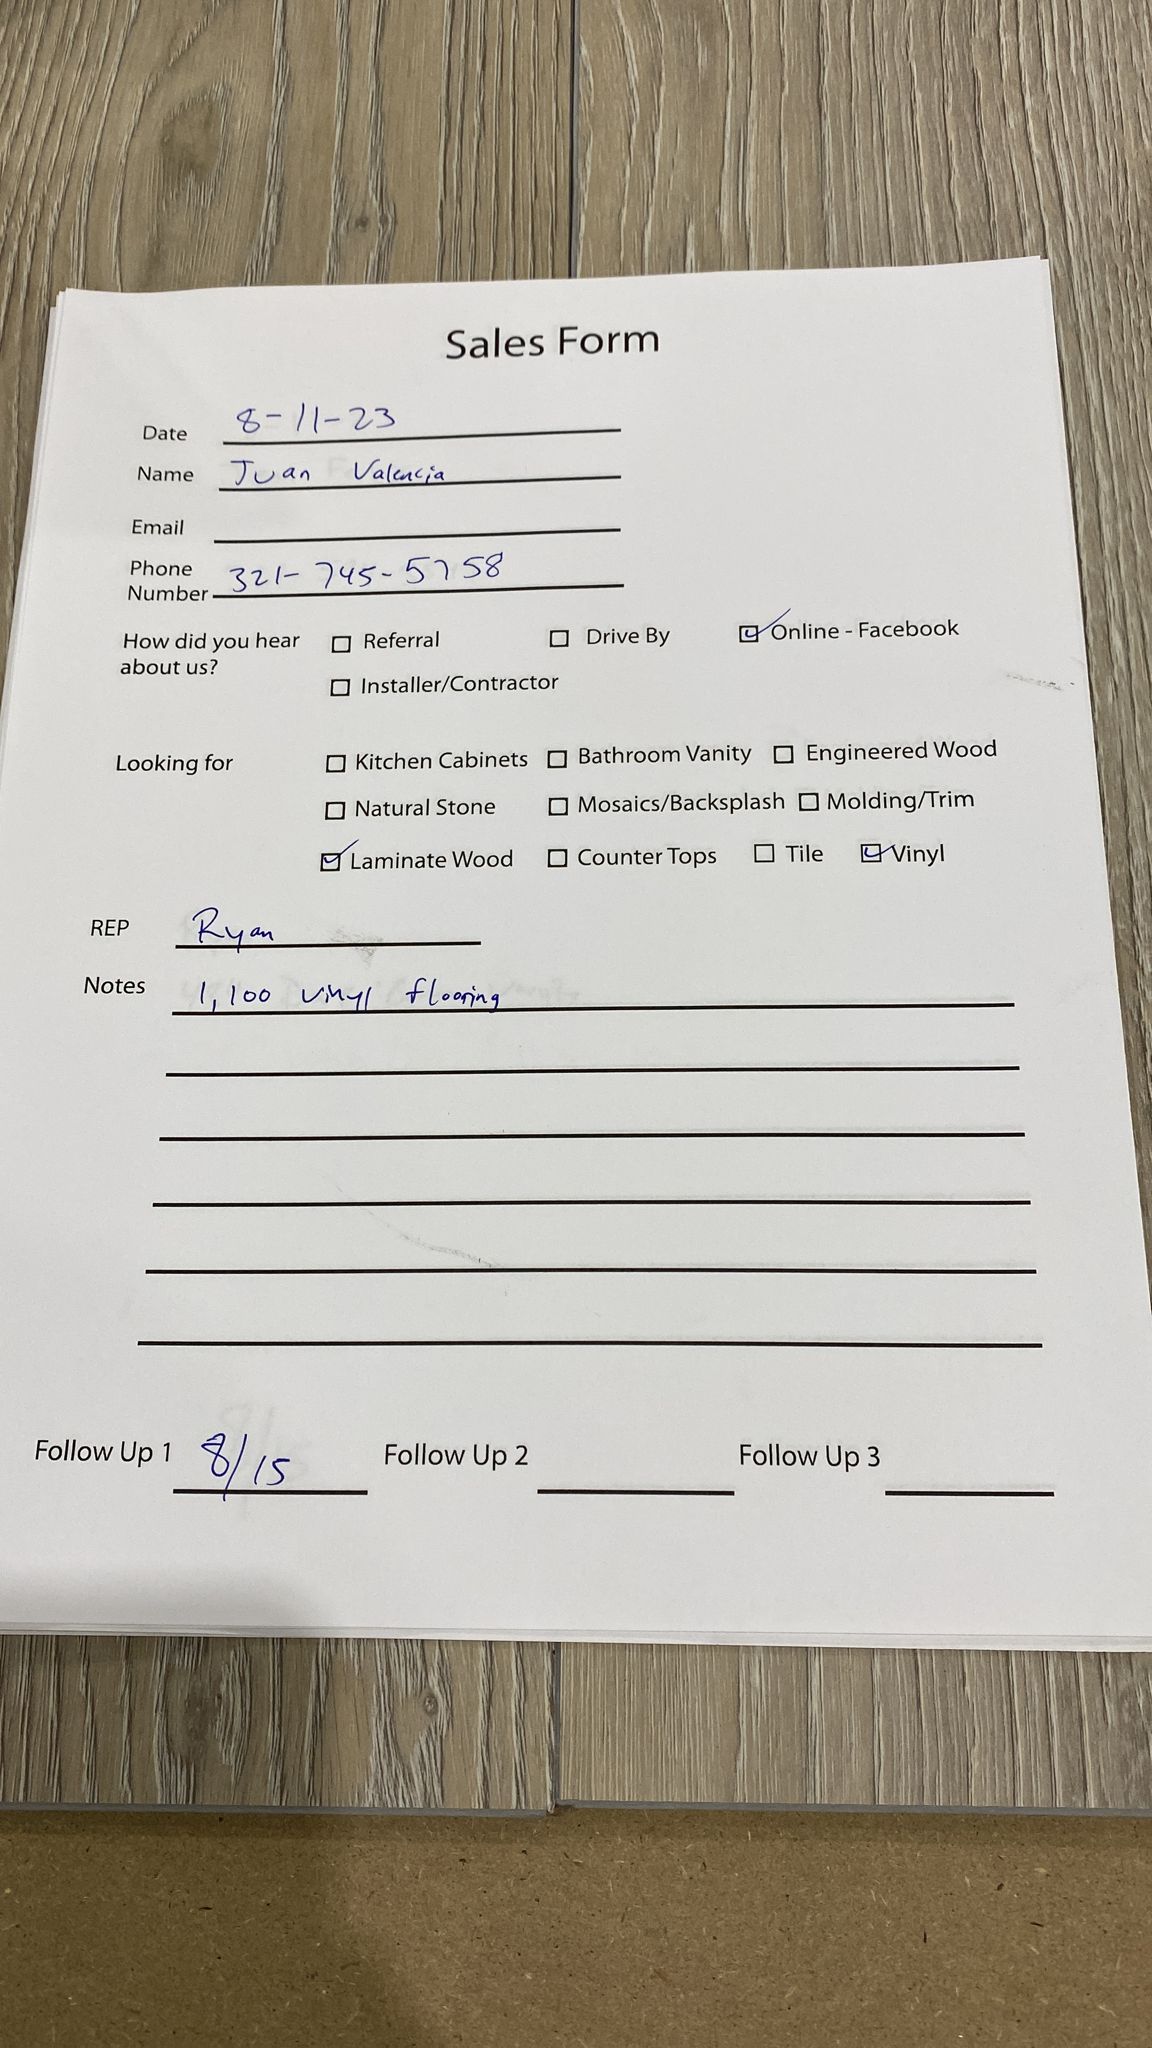 Sales Form
Date 8-11-23
Name Juan Valencia
Email
Phone
Number 321-745-5758
How did you hear ☐ Referral ☐ Drive By ☑ Online - Facebook
about us? ☐ Installer/Contractor
Looking for ☐ Kitchen Cabinets ☐ Bathroom Vanity ☐ Engineered Wood
☐ Natural Stone ☐ Mosaics/Backsplash ☐ Molding/Trim
☑ Laminate Wood ☐ Counter Tops ☐ Tile ☑ Vinyl
REP Ryan
Notes 1,100 vinyl flooring
Follow Up 1 8/15 Follow Up 2 Follow Up 3